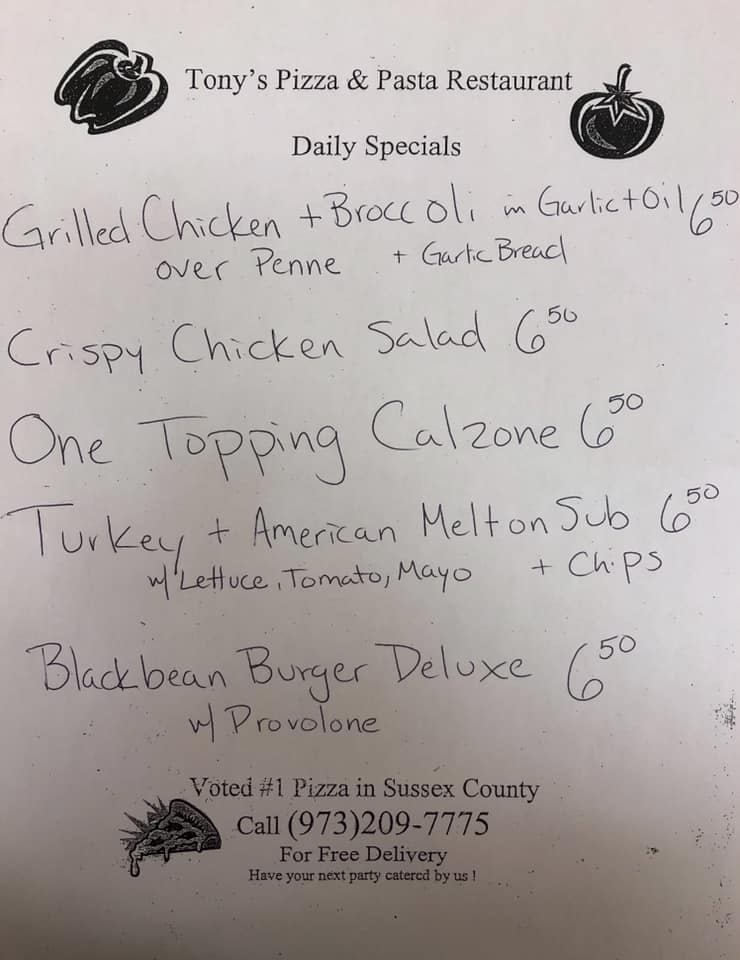 Tony's Pizza & Pasta Restaurant
Daily Specials
Grilled Chicken + Broccoli in Garlic + Oil 6.50
over Penne + Garlic Bread
Crispy Chicken Salad 6 50
One Topping Calzone 6 50
Turkey + American Melt on Sub 6 50
w/ Lettuce, Tomato, Mayo + Chips
Blackbean Burger Deluxe 6 50
w/ Provolone
Voted #1 Pizza in Sussex County
Call (973)209-7775
For Free Delivery
Have your next party catered by us !